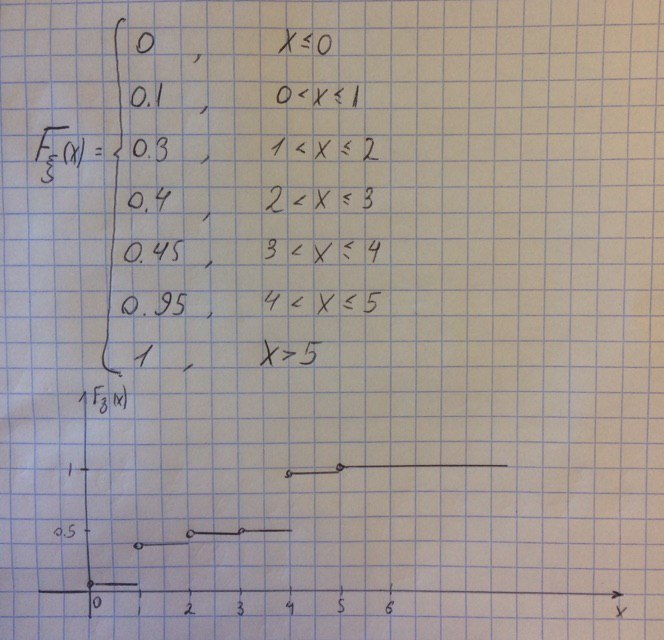 0 , x ≤ 0
0.1 , 0 < x ≤ 1
F_ξ(x) = { 0.3 , 1 < x ≤ 2
0.4 , 2 < x ≤ 3
0.45 , 3 < x ≤ 4
0.95 , 4 < x ≤ 5
1 , x > 5
F_ξ(x)
1
0.5
0 1 2 3 4 5 6 x